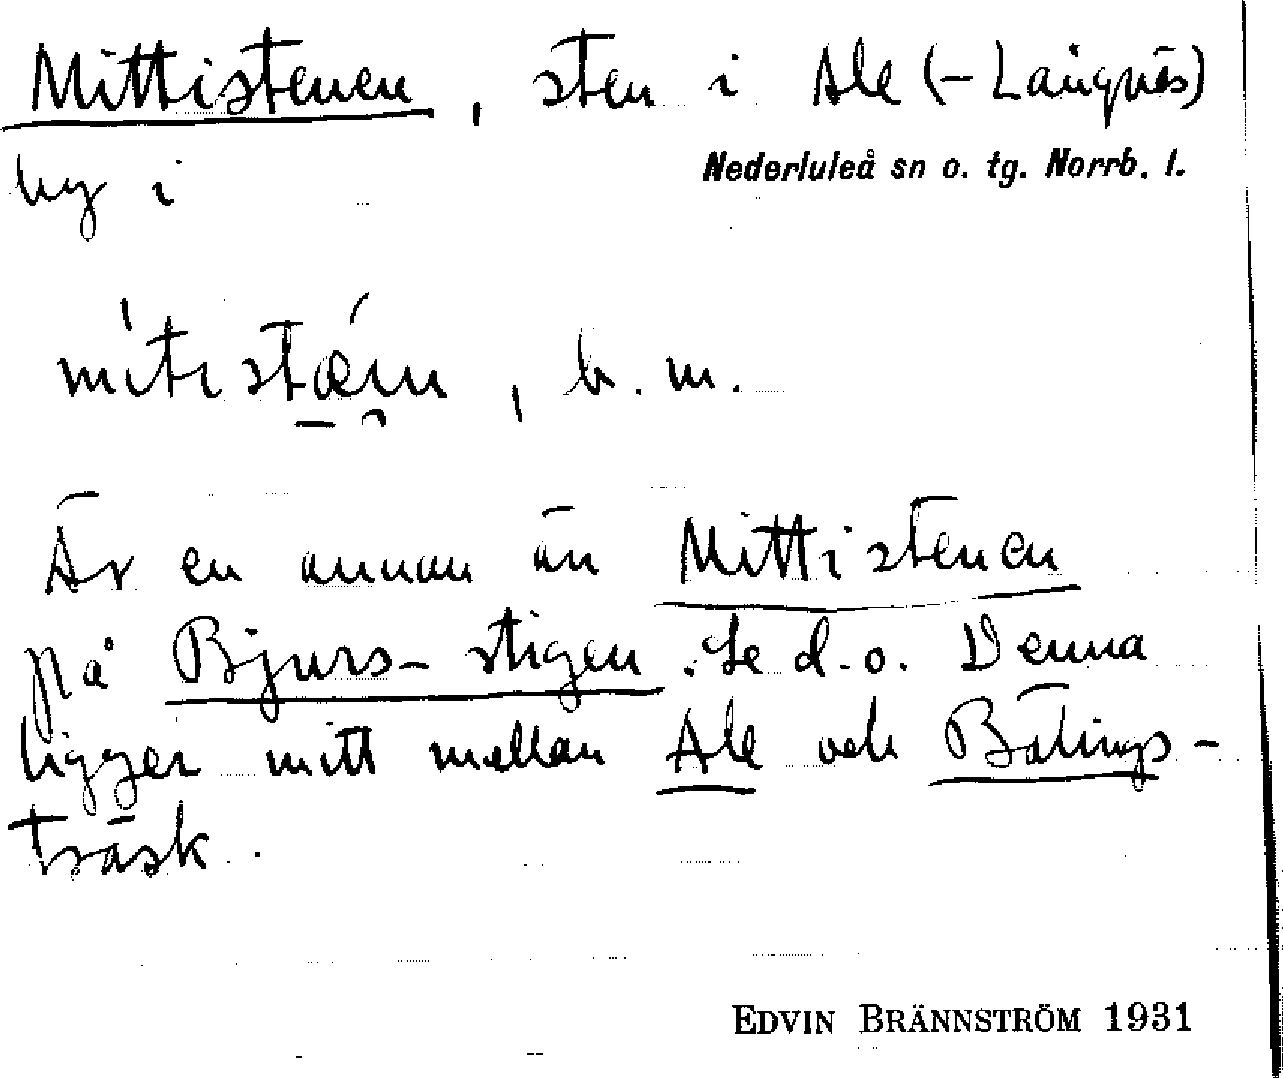 Mittistenen, sten i Ale (-Långnäs)
by i
Nederluleå sn o. tg. Norrb. l.
mítistǽn, b. m.
Är en annan än Mittistenen
på Bjurs-stigen. Se d.o. Denna
ligger mitt mellan Ale och Bälings-
träsk.
EDVIN BRÄNNSTRÖM 1931